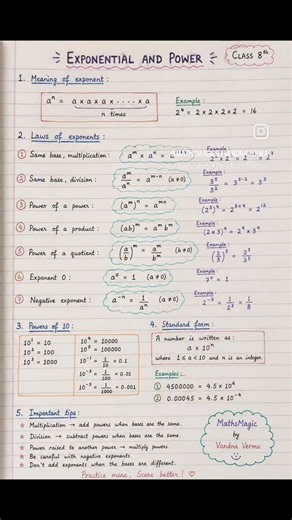 EXPONENTIAL AND POWER
CLASS 8th
1. Meaning of exponent:
aⁿ = a × a × a × ····· × a
n times
Example :
2⁴ = 2 × 2 × 2 × 2 = 16
2. Laws of exponents :
① Same base, multiplication :
② Same base, division : aᵐ/aⁿ = aᵐ⁻ⁿ (a≠0)
Example :
3⁵/3² = 3⁵⁻² = 3³
③ Power of a power : (aᵐ)ⁿ = aᵐⁿ
Example :
(2³)⁴ = 2³ˣ⁴ = 2¹²
④ Power of a product : (ab)ᵐ = aᵐbᵐ
Example :
(2×3)⁴ = 2⁴ × 3⁴
⑤ Power of a quotient : (a/b)ᵐ = aᵐ/bᵐ (b≠0)
Example :
⑥ Exponent 0 : a⁰ = 1 (a≠0)
Example :
7⁰ = 1
⑦ Negative exponent : a⁻ⁿ = 1/aⁿ (a≠0)
Example :
2⁻³ = 1/2³ = 1/8
3. Powers of 10 :
10¹ = 10
10² = 100
10³ = 1000
10⁴ = 10000
= 100000
10⁻¹ = 1/10 = 0.1
10⁻² = 1/100 = 0.01
10⁻³ = 1/1000 = 0.001
4. Standard form :
A number is written as :
a × 10ⁿ
where 1 ≤ a < 10 and n is an integer.
Examples :
① 4500000 = 4.5 × 10⁶
② 0.00045 = 4.5 × 10⁻⁴
5. Important tips :
★ Multiplication → add powers when bases are the same.
★ Division → subtract powers when bases are the same.
★ Power raised to another power → multiply powers.
★ Be careful with negative exponents.
★ Don't add exponents when the bases are different.
Practice more, Score better! ♡
MathsMagic
by
Vandna Verma